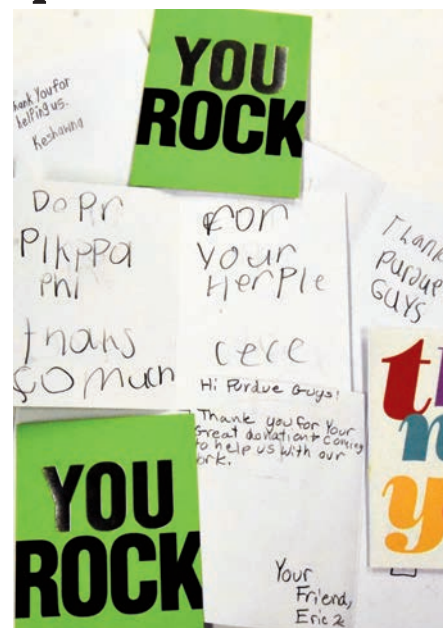 YOU
ROCK
Thank You for
helping us.
Keshawna
Dopr
Pikppa
phi
thans
so much
For
Your
Herple
cece
Thank
Purdue
GUYS
Hi Purdue Guys!
Thank you for Your
Great donation & coming
to help us with our
ork.
Your
Friend,
Eric
YOU
ROCK
t
y